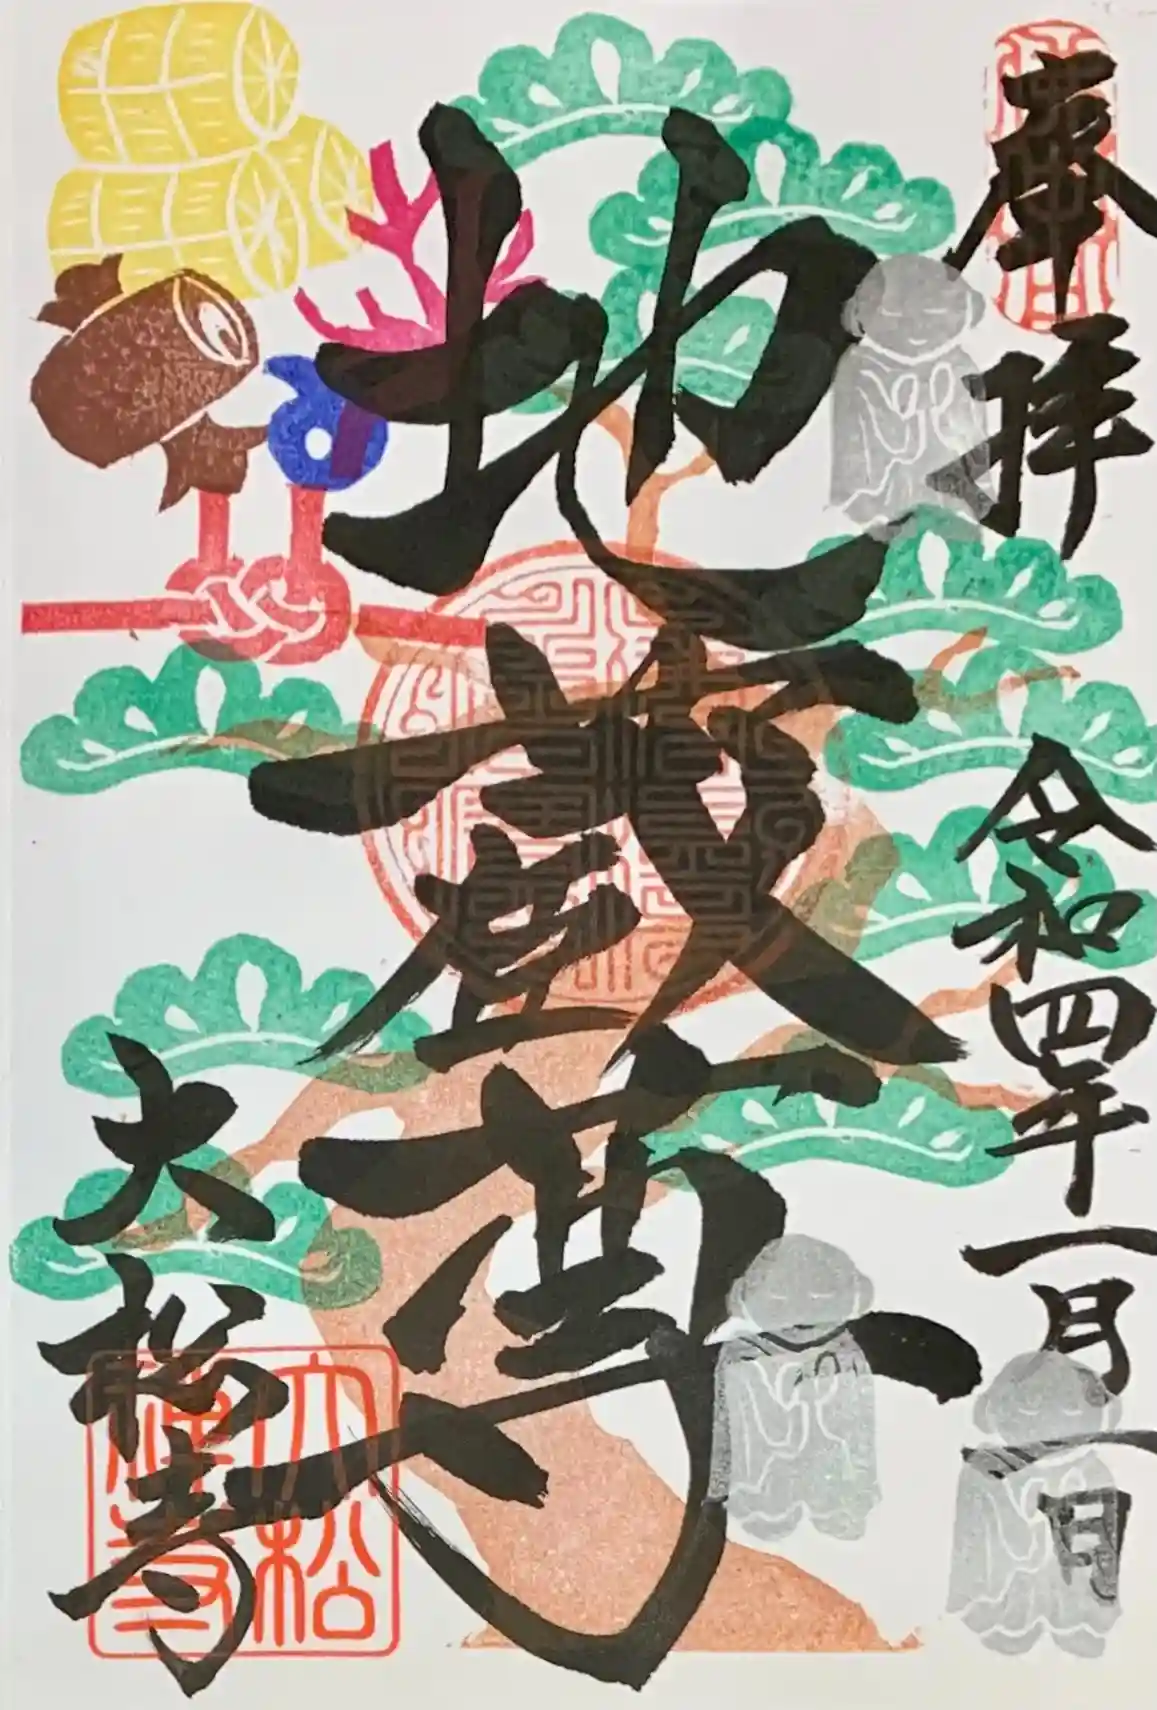 奉拝
令和四年一月一日
地蔵尊
大松寺
大松
禅寺